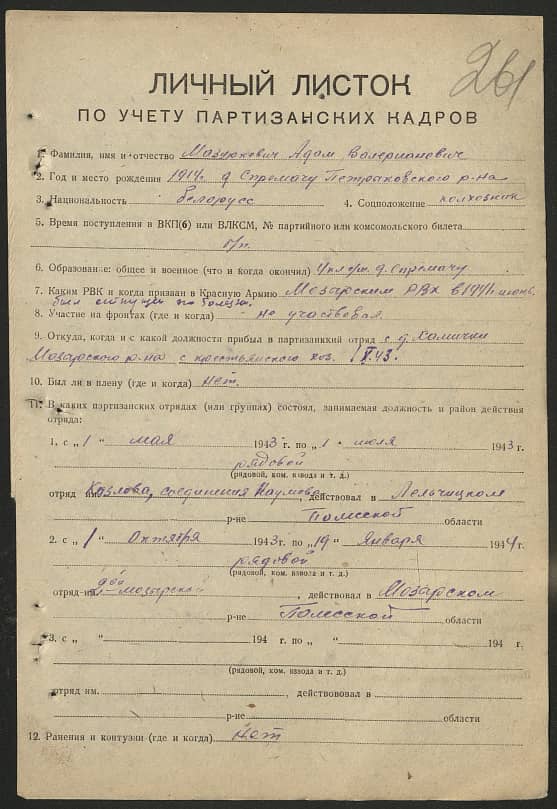 261
ЛИЧНЫЙ ЛИСТОК
ПО УЧЕТУ ПАРТИЗАНСКИХ КАДРОВ
1. Фамилия, имя и отчество Мазуркович Адам Валерианович
2. Год и место рождения 1914г. д Спремачу Петриковского р-на
3. Национальность белорусс 4. Соцположение колхозник
5. Время поступления в ВКП(б) или ВЛКСМ, № партийного или комсомольского билета
б/п.
6. Образование: общее и военное (что и когда окончил) 4 кл д. Спремачу
7. Каким РВК и когда призван в Красную Армию Мозарским РВК в 1941г июнь,
был отпущен по болезн.
8. Участие на фронтах (где и когда) не участвовал.
9. Откуда, когда и с какой должности прибыл в партизанский отряд с д. Хомички
Мозарского р-на с крестьянского хоз. 1/V.43.
10. Был ли в плену (где и когда) Нет.
11. В каких партизанских отрядах (или группах) состоял, занимаемая должность и район действия
отряда:
1, с „1" мая 1943 г. по „1" июля 1943 г.
рядовой
(рядовой, ком. взвода и т. д.)
отряд им. Козлова, соединения Наумова, действовал в Лельчицком
р-не Полесской области
2. с „1" Октября 1943 г. по „19" Января 1944 г.
рядовой
(рядовой, ком. взвода и т. д.)
отряд им. Мозырской, действовал в Мозарском
р-не Полесской области
3. с „ " 194 г. по „ " 194 г.
(рядовой, ком. взвода и т. д.)
отряд им. , действововал в
р-не области
12. Ранения и контузии (где и когда) Нет